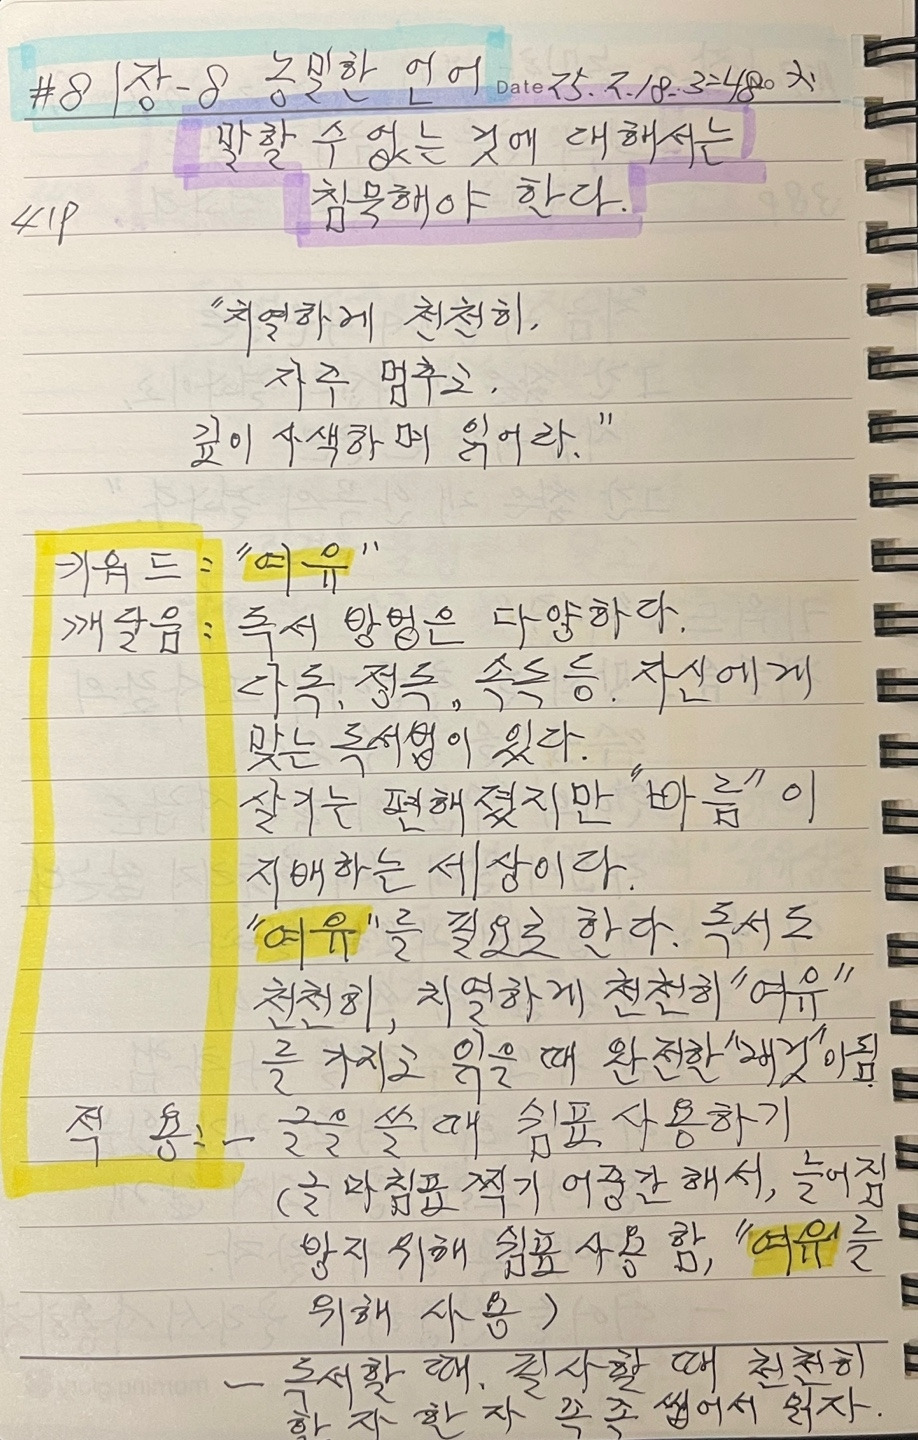 #8 1장-8 농밀한 언어 Date 25. 2. 18. 3:48 No
말할 수 없는 것에 대해서는
침묵해야 한다.
41p
"치열하게 천천히,
자주 멈추고,
깊이 사색하며 읽어라."
키워드 : "여유"
깨달음 : 독서 방법은 다양하다.
다독, 정독, 속독 등. 자신에게
맞는 독서법이 있다.
살기는 편해졌지만 "빠름"이
지배하는 세상이다.
"여유"를 필요로 한다. 독서도
천천히, 치열하게 천천히 "여유"
를 가지고 읽을 때 완전한 "내것"이 됨
적 용 : - 글을 쓸 때 쉼표 사용하기
(글 마침표 찍기 어중간 해서, 늘어짐
방지 위해 쉼표 사용 함, "여유"를
위해 사용)
- 독서할 때, 필사할 때 천천히
한 자 한 자 꼭꼭 씹어서 읽자.